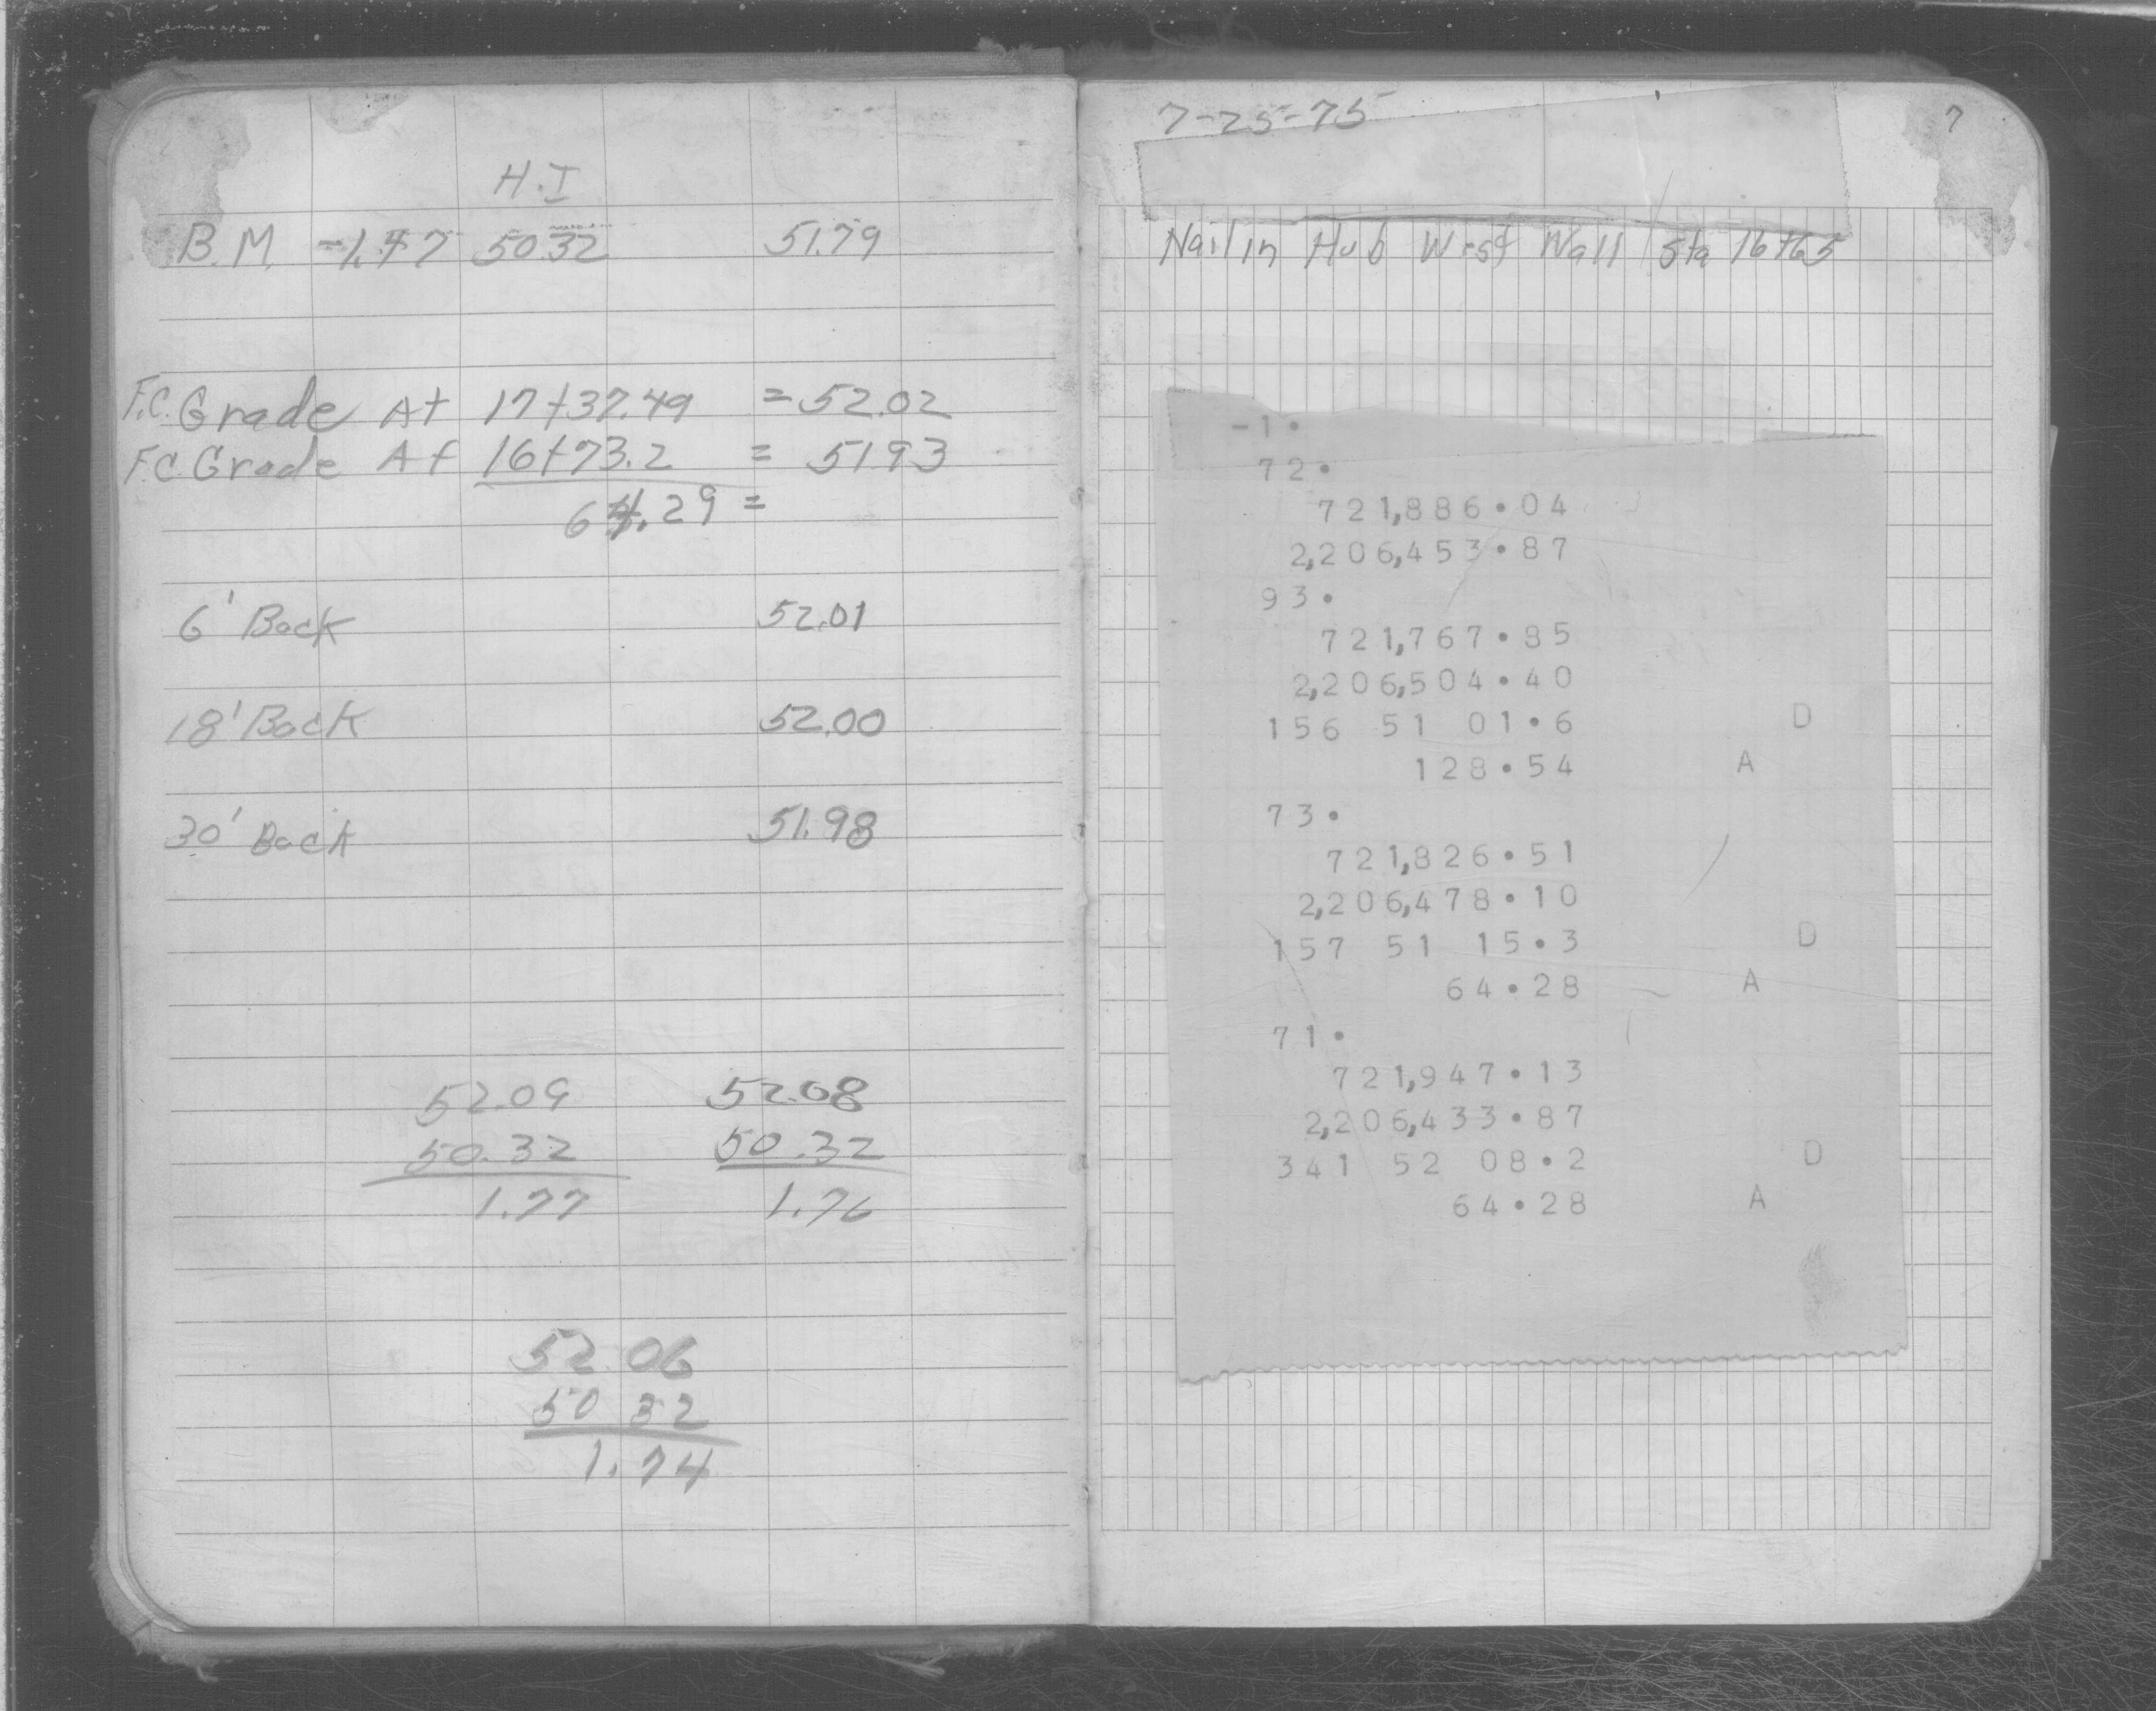 H.I
B.M. -1.47 50.32 51.79
F.C. Grade At 17+37.49 = 52.02
F.C. Grade At 16+73.2 = 51.93
64.29 =
6' Back 52.01
18' Back 52.00
30' Back 51.98
52.09 52.08
50.32 50.32
1.77 1.76
52 06
50 32
1.74
7-25-75 7
Nail in Hub West Wall Sta 16+65
-1.
72.
721,886.04
2,206,453.87
93.
721,767.85
2,206,504.40
156 51 01.6 D
128.54 A
73.
721,826.51
2,206,478.10
157 51 15.3 D
64.28 A
71.
721,947.13
2,206,433.87
341 52 08.2 D
64.28 A